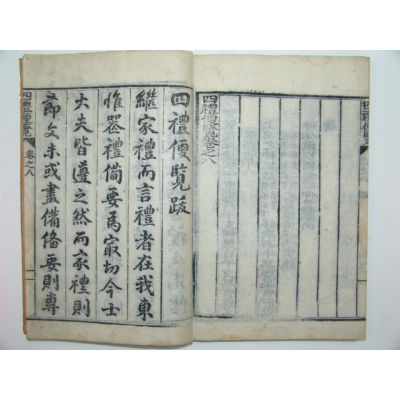 四禮便覽
四禮便覽卷之八
四禮便覽跋
繼家禮而言禮者在我東
惟喪禮備要爲㝡切今士
大夫皆遵之然而家禮則
節文未或盡備備要則專
四禮便覽 卷之八